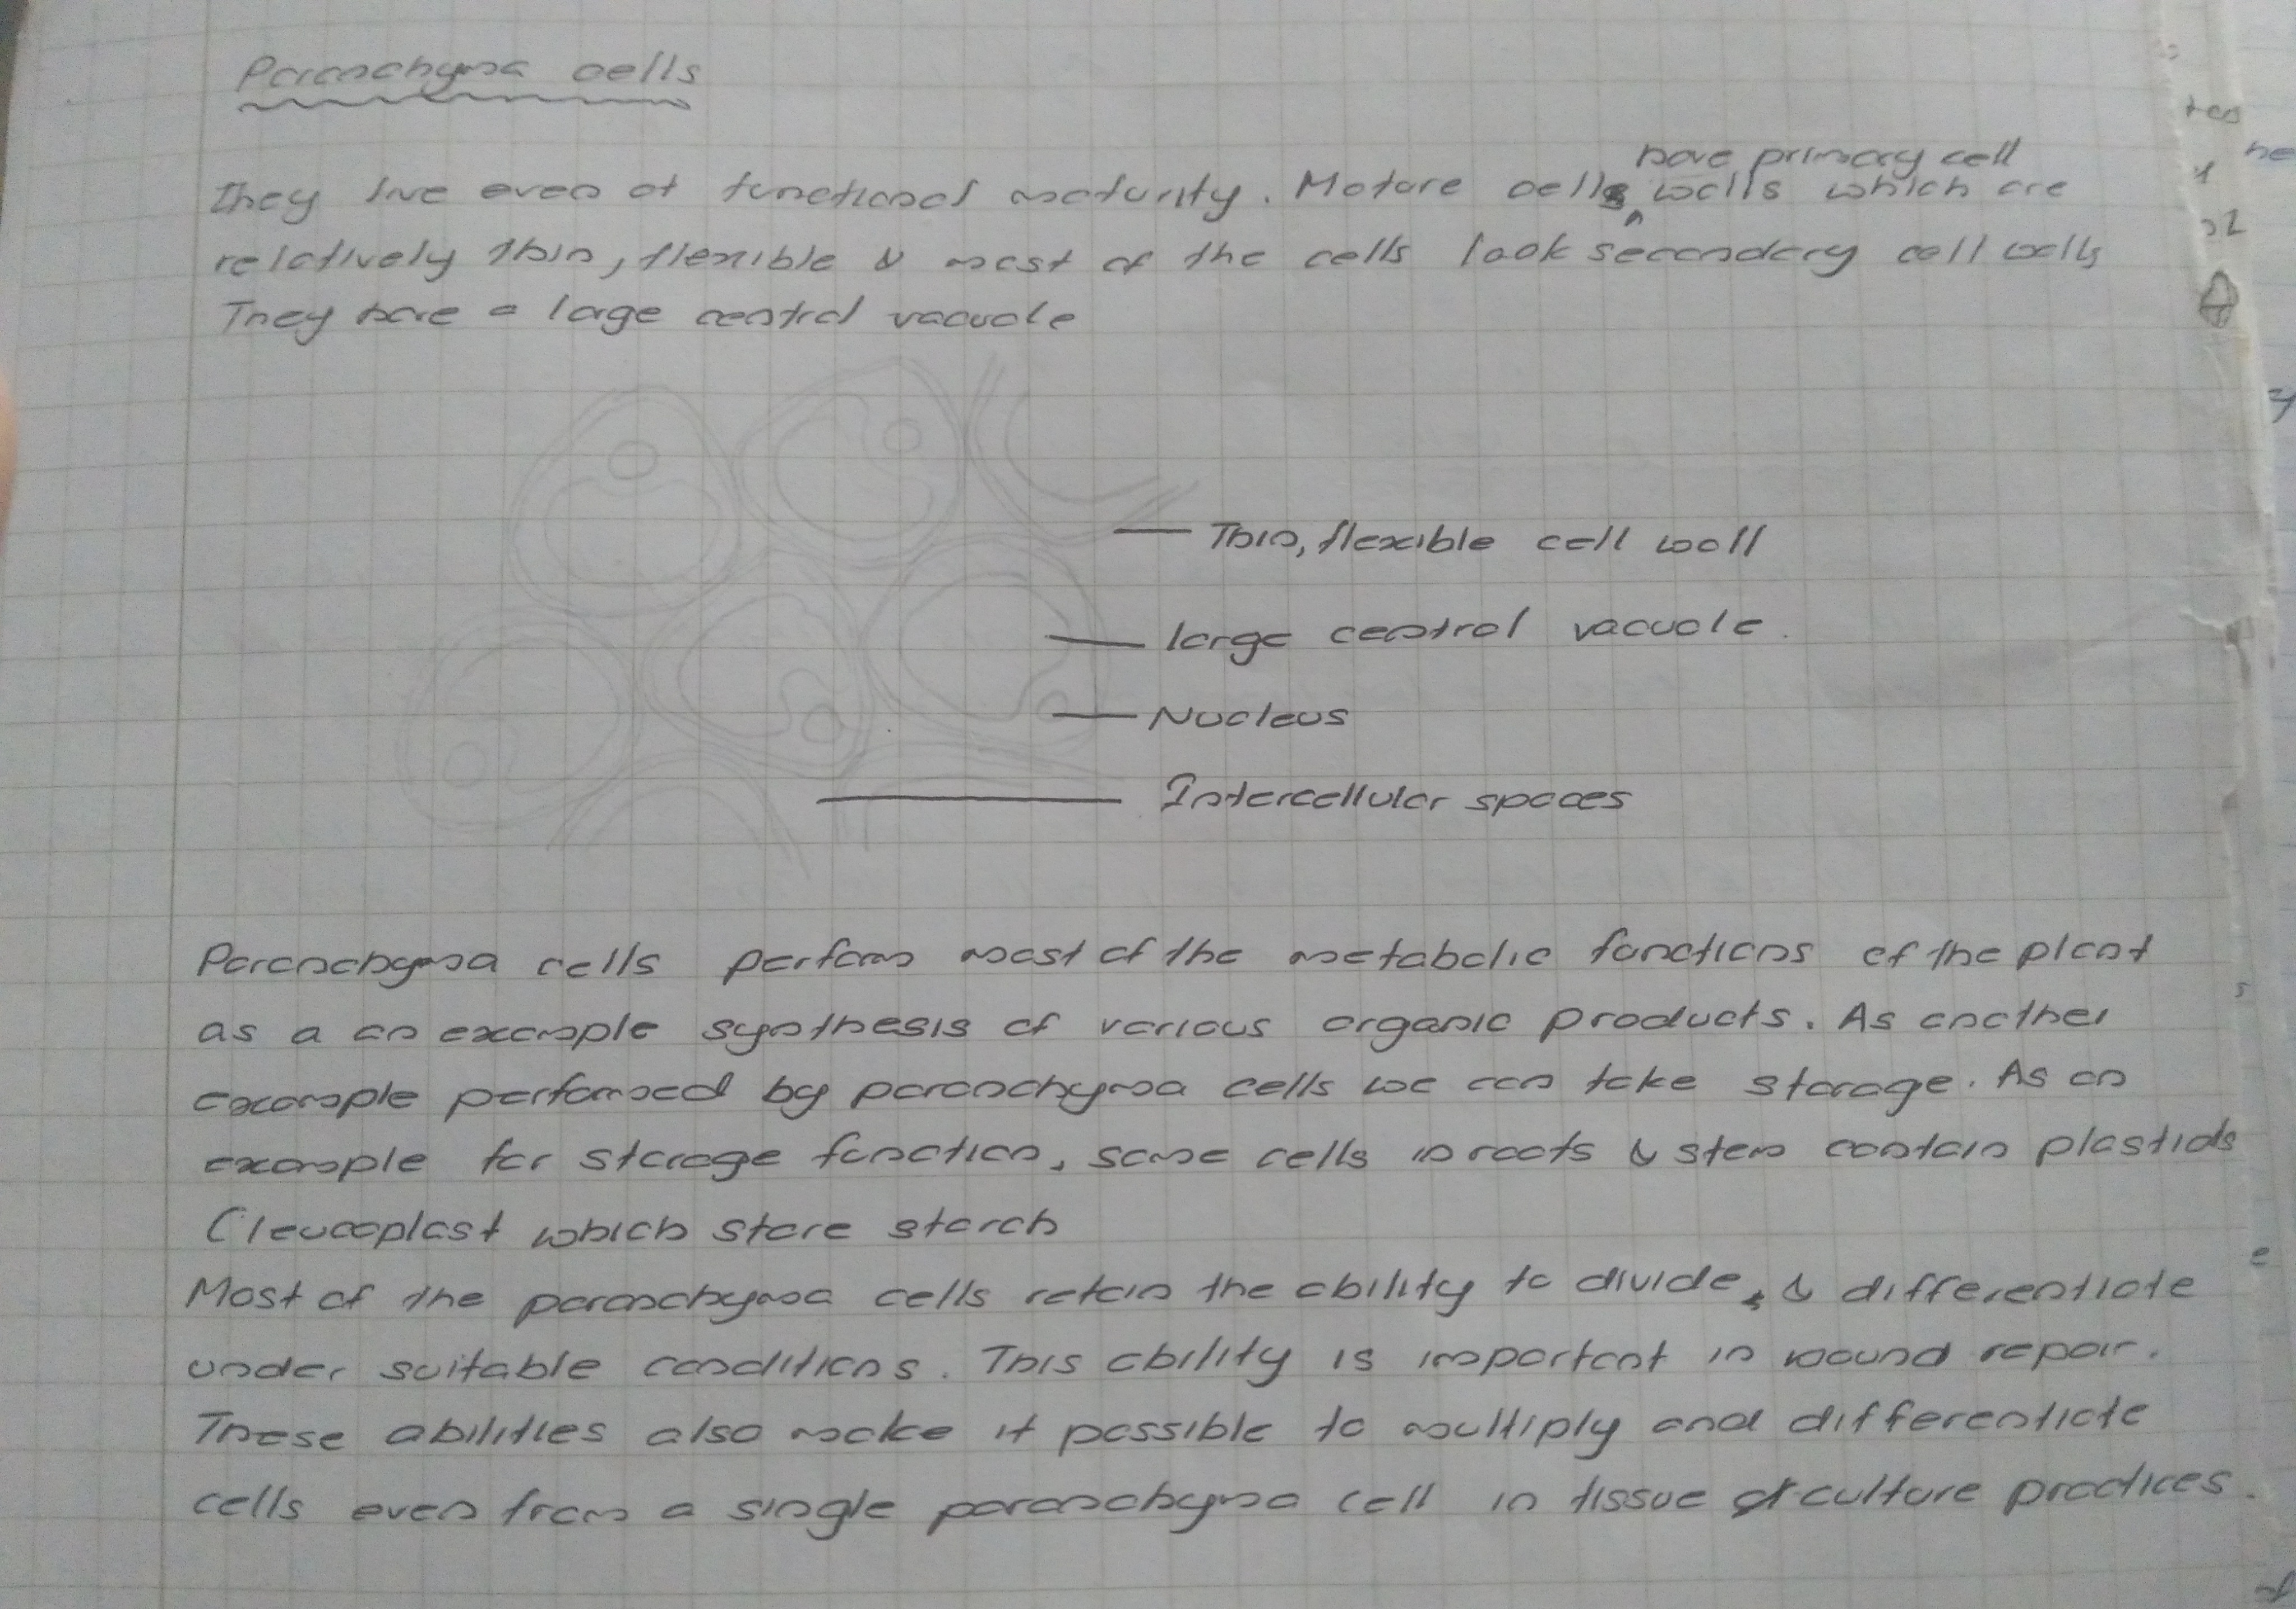 Parenchyma cells
They live even at functional maturity. Mature cells have primary cell walls which are
relatively thin, flexible & most of the cells lack secondary cell walls
They have a large central vacuole
Thin, flexible cell wall
large central vacuole.
Nucleus
Intercellular spaces
Parenchyma cells perform most of the metabolic functions of the plant
as a an example synthesis of various organic products. As another
example performed by parenchyma cells we can take storage. As an
example for storage function, some cells in roots & stem contain plastids
(leucoplast which store starch
Most of the parenchyma cells retain the ability to divide, & differentiate
under suitable conditions. This ability is important in wound repair.
These abilities also make it possible to multiply and differentiate
cells even from a single parenchyma cell in tissue culture practices.